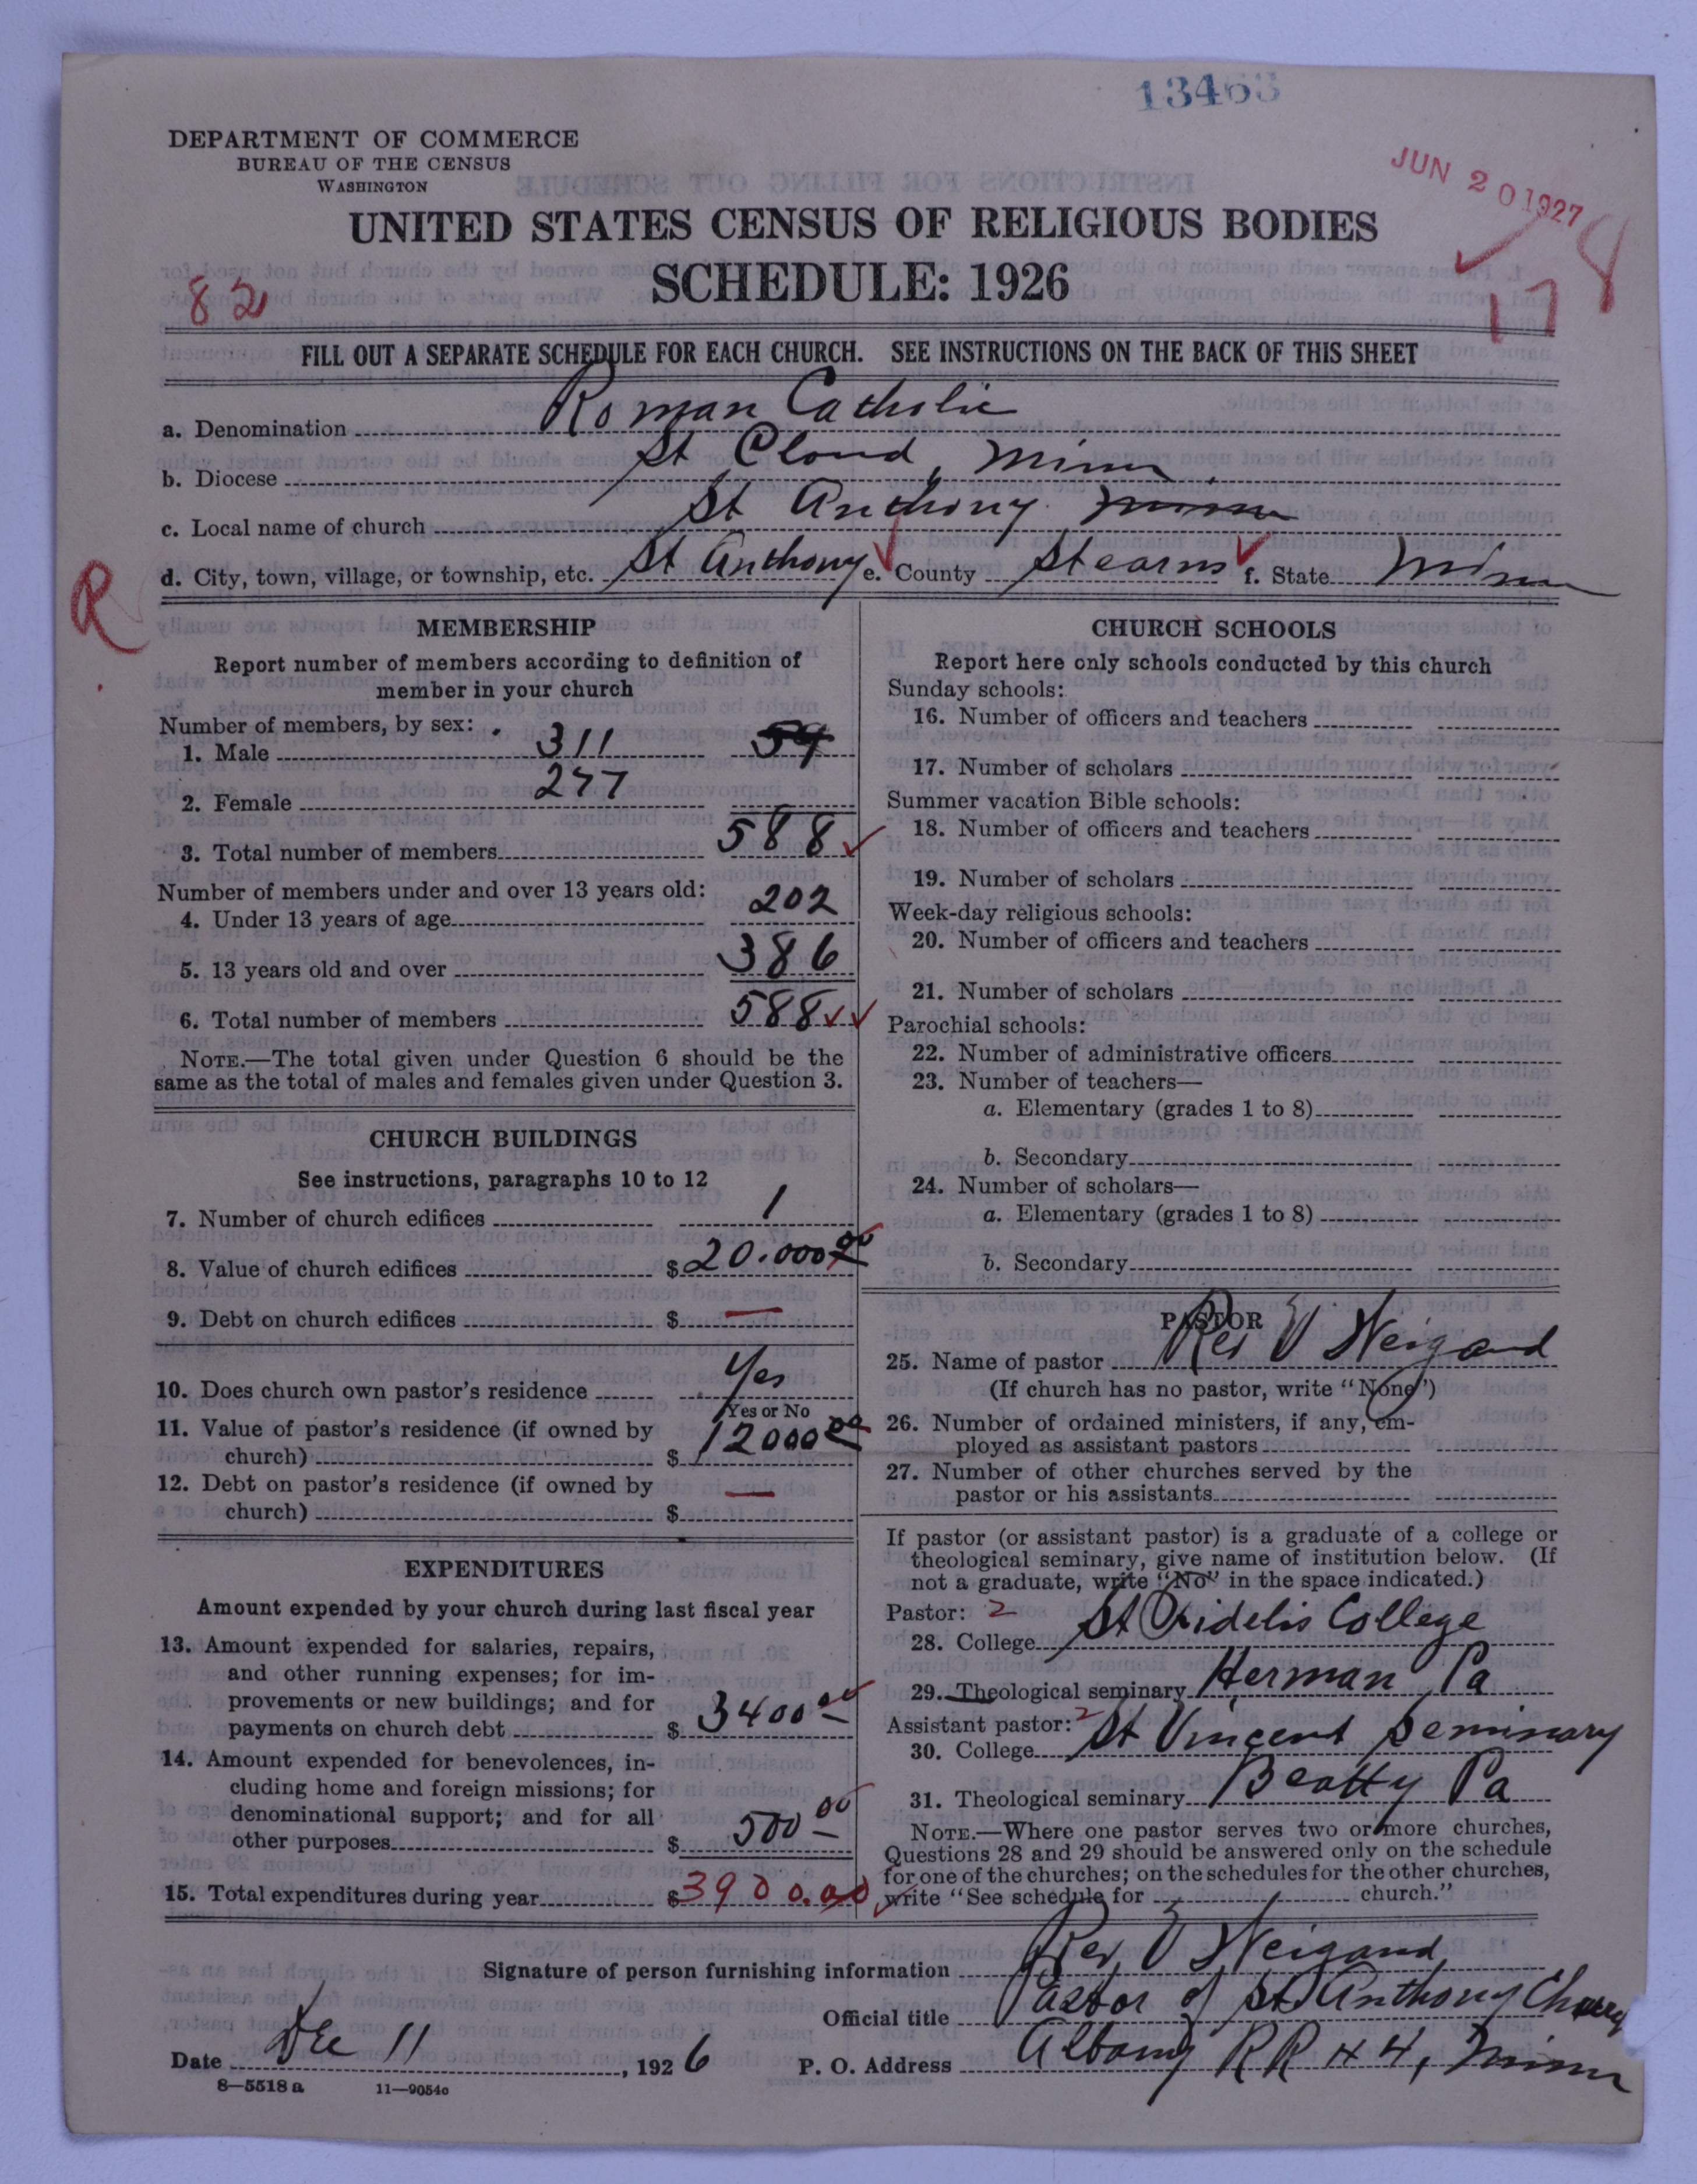 13463
DEPARTMENT OF COMMERCE
BUREAU OF THE CENSUS
WASHINGTON
JUN 20 1927
UNITED STATES CENSUS OF RELIGIOUS BODIES
SCHEDULE: 1926
82
178
FILL OUT A SEPARATE SCHEDULE FOR EACH CHURCH. SEE INSTRUCTIONS ON THE BACK OF THIS SHEET
a. Denomination Roman Catholic
b. Diocese St Cloud, Minn
c. Local name of church St Anthony Minn
d. City, town, village, or township, etc. St Anthony e. County Stearns f. State Minn
R
MEMBERSHIP
Report number of members according to definition of
member in your church
Number of members, by sex:
1. Male 311 54
2. Female 277
3. Total number of members 588
Number of members under and over 13 years old:
4. Under 13 years of age 202
5. 13 years old and over 386
6. Total number of members 588
NOTE.—The total given under Question 6 should be the
same as the total of males and females given under Question 3.
CHURCH BUILDINGS
See instructions, paragraphs 10 to 12
7. Number of church edifices 1
8. Value of church edifices $ 20.000 00
9. Debt on church edifices $ —
10. Does church own pastor's residence Yes
Yes or No
11. Value of pastor's residence (if owned by
church) $ 12000 00
12. Debt on pastor's residence (if owned by
church) $ —
EXPENDITURES
Amount expended by your church during last fiscal year
13. Amount expended for salaries, repairs,
and other running expenses; for im-
provements or new buildings; and for
payments on church debt $ 3400 00
14. Amount expended for benevolences, in-
cluding home and foreign missions; for
denominational support; and for all
other purposes $ 500 00
15. Total expenditures during year $ 3900.00
CHURCH SCHOOLS
Report here only schools conducted by this church
Sunday schools:
16. Number of officers and teachers
17. Number of scholars
Summer vacation Bible schools:
18. Number of officers and teachers
19. Number of scholars
Week-day religious schools:
20. Number of officers and teachers
21. Number of scholars
Parochial schools:
22. Number of administrative officers
23. Number of teachers—
a. Elementary (grades 1 to 8)
b. Secondary
24. Number of scholars—
a. Elementary (grades 1 to 8)
b. Secondary
PASTOR
25. Name of pastor Rev V Weigand
(If church has no pastor, write "None")
26. Number of ordained ministers, if any, em-
ployed as assistant pastors
27. Number of other churches served by the
pastor or his assistants
If pastor (or assistant pastor) is a graduate of a college or
theological seminary, give name of institution below. (If
not a graduate, write "No" in the space indicated.)
Pastor: 2
28. College St Fidelis College
29. Theological seminary Herman Pa
Assistant pastor: 2
30. College St Vincent Seminary
31. Theological seminary Beatty Pa
NOTE.—Where one pastor serves two or more churches,
Questions 28 and 29 should be answered only on the schedule
for one of the churches; on the schedules for the other churches,
write "See schedule for church."
Signature of person furnishing information Rev V Weigand
Official title Pastor of St Anthony Church
Date Dec 11, 1926 P. O. Address Albany RR # 4, Minn
8—5518 a 11—9054c